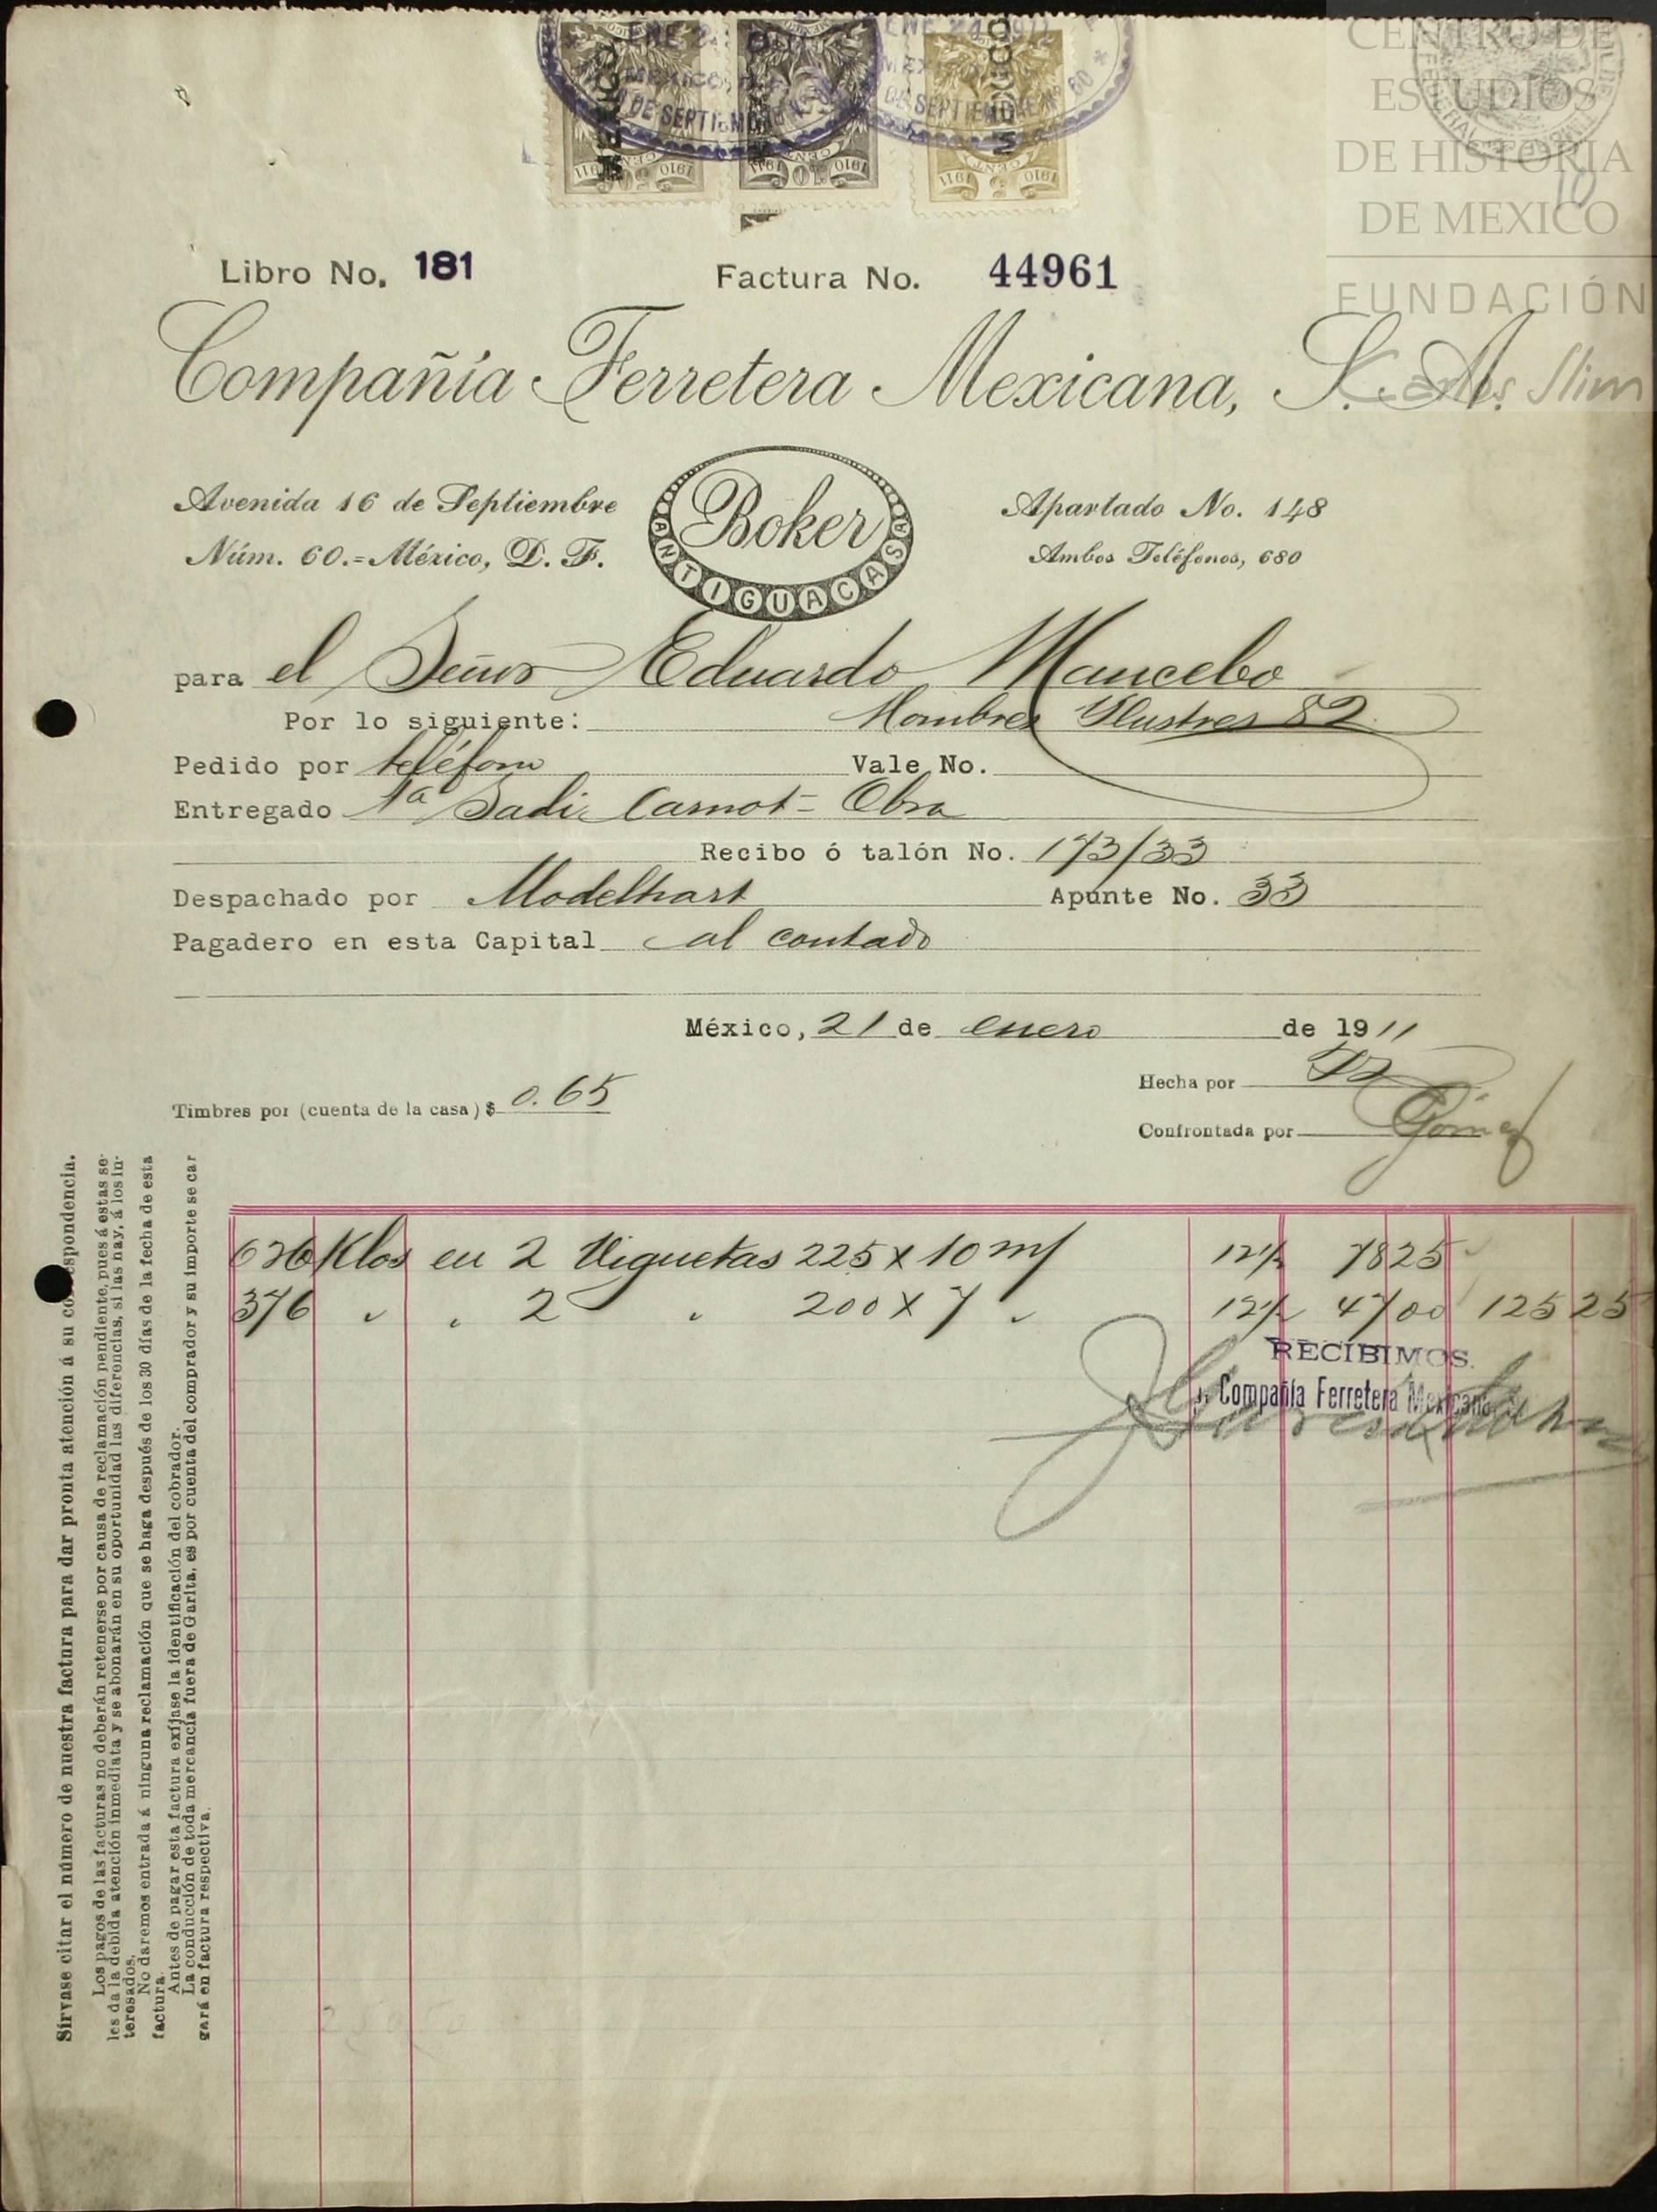 CENTRO DE
ESTUDIOS
DE HISTORIA
DE MEXICO
FUNDACIÓN
Carlos Slim
10
ENE 24 1911
MEXICO
DE SEPTIEMBRE Nº 60
MEXICO
1910 1911
50
1910 1911
10
1910 1911
5
Libro No. 181 Factura No. 44961
Compañía Ferretera Mexicana, S. A.
Avenida 16 de Septiembre
Núm. 60.=México, D. F.
Boker
ANTIGUA CASA
Apartado No. 148
Ambos Teléfonos, 680
para el Señor Eduardo Mancebo
Por lo siguiente: Hombres Ilustres 82
Pedido por teléfono Vale No.
Entregado 1ª Sadi Carnot - Obra
Recibo ó talón No. 173/33
Despachado por Modelhart Apunte No. 33
Pagadero en esta Capital al contado
México, 21 de enero de 1911
Hecha por
Timbres por (cuenta de la casa) $ 0.65
Confrontada por Gómez
626 Klos en 2 Viguetas 225 x 10 m/ 12½ 78 25
376 " " 2 " 200 x 7 " 12½ 47 00 125 25
RECIBIMOS.
Compañía Ferretera Mexicana
Sírvase citar el número de nuestra factura para dar pronta atención á su correspondencia.
Los pagos de las facturas no deberán retenerse por causa de reclamación pendiente, pues á estas se-
les da la debida atención inmediata y se abonarán en su oportunidad las diferencias, si las hay, á los in-
teresados.
No daremos entrada á ninguna reclamación que se haga después de los 30 días de la fecha de esta
factura.
Antes de pagar esta factura exíjase la identificación del cobrador.
La conducción de toda mercancía fuera de Garita, es por cuenta del comprador y su importe se car
gará en factura respectiva.